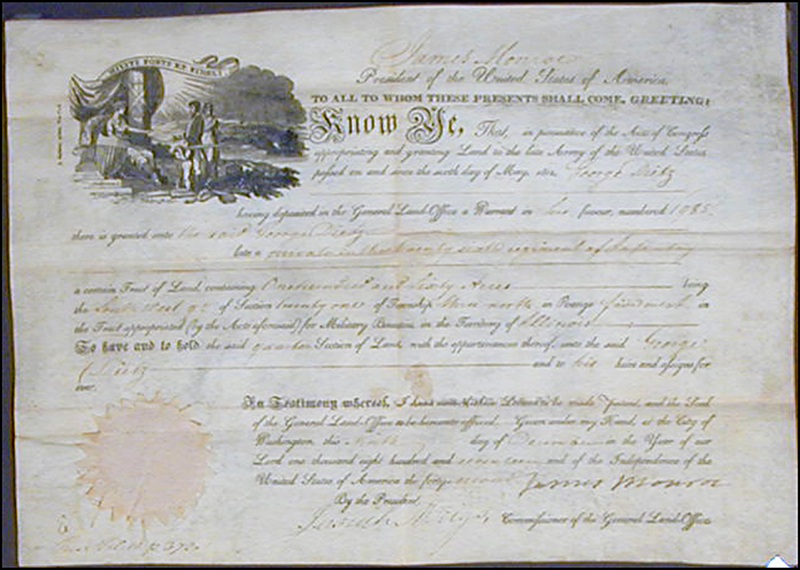 James Monroe
President of the United States of America,
TO ALL TO WHOM THESE PRESENTS SHALL COME, GREETING:
Know Ye, That, in pursuance of the Acts of Congress
appropriating and granting Land to the late Army of the United States,
passed on and since the sixth day of May, 1812, George Dietz
having deposited in the General Land-Office a Warrant in his favour, numbered 1985
there is granted unto the said George Dietz
late a private in the twenty sixth regiment of Infantry
a certain Tract of Land, containing One hundred and sixty Acres being
the South East qr of Section twenty one of Township three north in Range in
the Tract appropriated (by the Acts aforesaid) for Military Bounties, in the Territory of Illinois
To have and to hold the said quarter Section of Land, with the appurtenances thereof, unto the said George
Dietz and to his heirs and assigns for
ever.
In Testimony whereof, I have Letters to be made Patent, and the Seal
of the General Land-Office to be hereunto affixed. Given under my Hand, at the City of
Washington, this day of December in the Year of our
Lord one thousand eight hundred and seventeen and of the Independence of the
United States of America the forty second James Monroe
By the President,
Josiah Meigs, Commissioner of the General Land-Office.